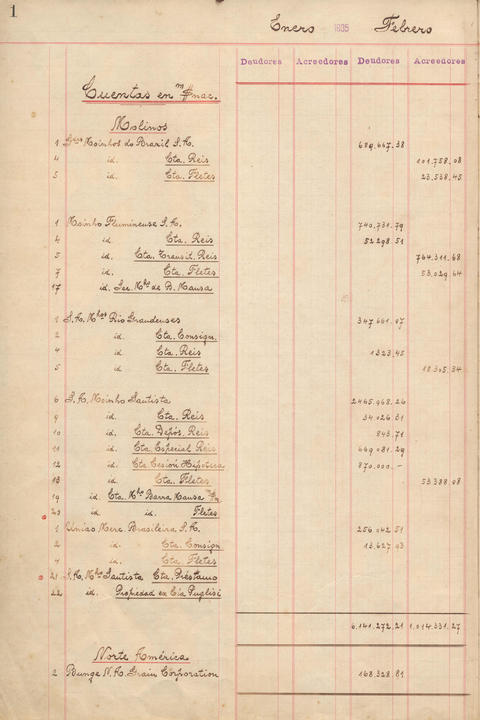 1
Enero 1935 Febrero
Deudores Acreedores Deudores Acreedores
Cuentas en m/$nac.
Molinos
1 Grs Moinhos do Brazil S.A. 689.667.38
4 id. Cta. Reis 101.758.08
5 id. Cta. Fletes 23.538.45
1 Moinho Fluminense S.A. 740.731.79
4 id. Cta. Reis 52.298.51
5 id. Cta. Transit. Reis 764.311.68
7 id. Cta. Fletes 53.029.64
17 id. Sec. Mho de B. Mansa
1 S.A. Mhos Rio Grandenses 347.661.07
2 id. Cta. Consign.
4 id. Cta. Reis 1323.45
5 id. Cta. Fletes 18.305.34
6 S.A. Moinho Santista 2465.968.26
9 id. Cta. Reis 34.026.31
10 id. Cta. Depós. Reis 843.71
11 id. Cta. Especial Reis 669.081.29
12 id. Cta Cesión Hipoteca 870.000.-
13 id. Cta. Fletes 53.388.08
19 id. Cta. Mho Barra Mansa
20 id. id. Fletes
1 União Merc. Brasileira S.A. 256.042.51
2 id. Cta. Consign 13.627.93
4 id. Cta. Fletes
21 S.A. Mho Santista Cta. Préstamo
22 id. Propiedad ex Cia Puglisi
6.141.272.21 1.014.331.27
Norte América
2 Bunge N.A. Grain Corporation 168.328.81